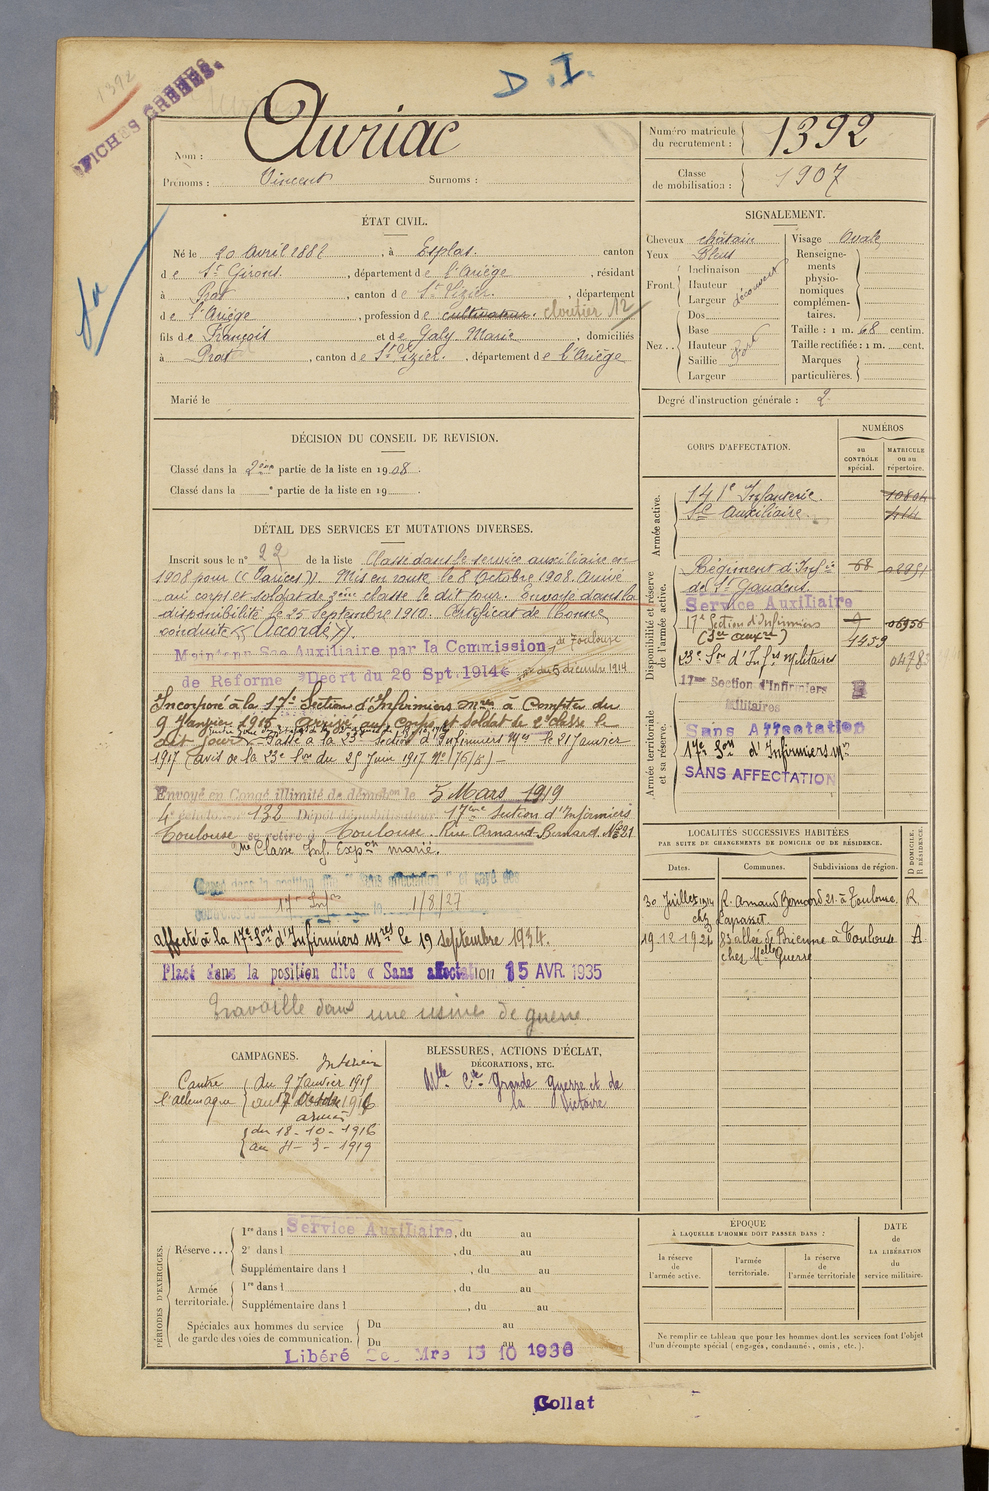 1392
FICHES CRÉÉES.
D.I.
Nom : Auriac
Prénoms : Vincent Surnoms :
Numéro matricule du recrutement : 1392
Classe de mobilisation : 1907
ÉTAT CIVIL.
Né le 20 Avril 1887, à Esplas. canton
de St Girons. , département de l'Ariège , résidant
à Prat , canton de St Lizier. , département
de l'Ariège , profession de cultivateur. cloutier 12
fils de François et de Galy Marie , domiciliés
à Prat , canton de St Lizier. , département de l'Ariège
Marié le
SIGNALEMENT.
Cheveux châtain
Yeux Bleus
Front. Inclinaison
Hauteur
Largeur découvert
Nez .. Dos
Base
Hauteur fort
Saillie
Largeur
Visage Ovale
Renseignements physionomiques complémentaires.
Taille : 1 m. 68 centim.
Taille rectifiée : 1 m. cent.
Marques particulières.
Degré d'instruction générale : 2.
DÉCISION DU CONSEIL DE REVISION.
Classé dans la 2ème partie de la liste en 1908.
Classé dans la e partie de la liste en 19 .
DÉTAIL DES SERVICES ET MUTATIONS DIVERSES.
Inscrit sous le n° 22 de la liste Classé dans le service auxiliaire en
1908 pour « Varices ». Mis en route le 8 Octobre 1908. Arrivé
au corps et soldat de 2ème classe le dit jour. Envoyé dans la
disponibilité le 25 Septembre 1910. Certificat de bonne
conduite « Accordé ».
Maintenu Sce Auxiliaire par la Commission de Toulouse
de Reforme Décrt du 26 Spt 1914 du 5 décembre 1914
Incorporé à la 17e Section d'Infirmiers Mres à compter du
9 Janvier 1915 arrivé au corps et soldat de 2e classe le
dit jour. Passé à la 23e Section d'Infirmiers Mres le 21 Janvier
1917 (avis de la 23e Son du 25 Juin 1917 No 176/K) —
Envoyé en Congé illimité de démobon le 5 Mars 1919
4e échelon no 132 Dépôt démobilisateur 17ème Section d'Infirmiers
Toulouse se retire à Toulouse. Rue Arnaud-Bernard. No 21
Classé dans la position dite " Sans affectation " et rayé des
contrôles de 17e Infes le 1/8/27
affecté à la 17e Son d'Infirmiers Mres le 19 septembre 1934.
Placé dans la position dite « Sans affectation 15 AVR. 1935
travaille dans une usine de guerre.
CORPS D'AFFECTATION.
NUMÉROS
au CONTRÔLE spécial.
MATRICULE ou au répertoire.
Armée active.
141e Infanterie. 10804
Sce Auxiliaire 414
Disponibilité et réserve de l'armée active.
Régiment d'Infie 68 02951
de St Gaudens.
Service Auxiliaire
17e Section d'Infirmiers 06956
(Sce auxre) 4459
23e Son d'Infes Militaires 04783
17me Section d'Infirmiers
Militaires
Armée territoriale et sa réserve.
Sans Affectation
17e Son d'Infirmiers Mres
SANS AFFECTATION
LOCALITÉS SUCCESSIVES HABITÉES
PAR SUITE DE CHANGEMENTS DE DOMICILE OU DE RÉSIDENCE.
Dates. Communes. Subdivisions de région. D DOMICILE. R RÉSIDENCE.
30 Juillet 1914 R. Arnaud Bernard 21. à Toulouse. R.
chez Laprasset.
19.12.1921 83 allée de Brienne à Toulouse A
chez Melle Guerre
CAMPAGNES.
Contre l'Allemagne
Intérieur
du 9 Janvier 1915
au 17 Octobre 1916
armées
du 18-10-1916
au 4-3-1919
BLESSURES, ACTIONS D'ÉCLAT,
DÉCORATIONS, ETC.
Mlle Cve Grande Guerre et de
la Victoire
PÉRIODES D'EXERCICES.
Réserve ... 1re dans l Service Auxiliaire , du au
2e dans l , du au
Supplémentaire dans l , du au
Armée territoriale. 1re dans l , du au
Supplémentaire dans l , du au
Spéciales aux hommes du service de garde des voies de communication. Du au
Du au
Libéré Sce Mre 15 10 1936
ÉPOQUE
À LAQUELLE L'HOMME DOIT PASSER DANS :
la réserve de l'armée active.
l'armée territoriale.
la réserve de l'armée territoriale
DATE de LA LIBÉRATION du service militaire.
Ne remplir ce tableau que pour les hommes dont les services font l'objet
d'un décompte spécial (engagés, condamnés, omis, etc.).
Collat